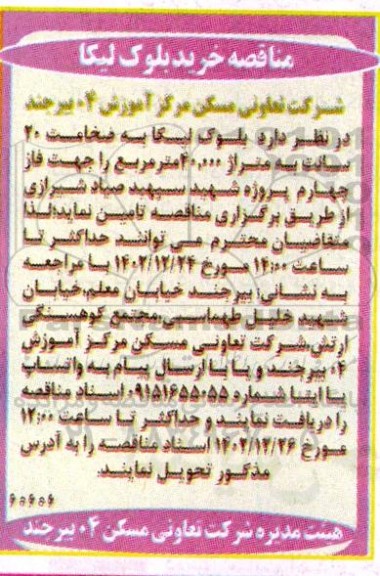 مناقصه خرید بلوک لیکا
شرکت تعاونی مسکن مرکز آموزش ۰۴ بیرجند
در نظر دارد بلوک لیکا به ضخامت ۲۰
سانت به متراژ ۲۰,۰۰۰مترمربع را جهت فاز
چهارم پروژه شهید سپهبد صیاد شیرازی
از طریق برگزاری مناقصه تامین نماید؛لذا
متقاضیان محترم می توانند حداکثر تا
ساعت ۱۴:۰۰ مورخ ۱۴۰۲/۱۲/۲۴ با مراجعه
به نشانی: بیرجند خیابان معلم،خیابان
شهید خلیل طهماسبی،مجتمع کوهسنگی
ارتش،شرکت تعاونی مسکن مرکز آموزش
۰۴ بیرجند و یا با ارسال پیام به واتساپ
یا ایتا شماره اسناد مناقصه
را دریافت نمایند و حداکثر تا ساعت ۱۲:۰۰
مورخ ۱۴۰۲/۱۲/۲۶ اسناد مناقصه را به آدرس
مذکور تحویل نمایند.
هیئت مدیره شرکت تعاونی مسکن ۰۴ بیرجند